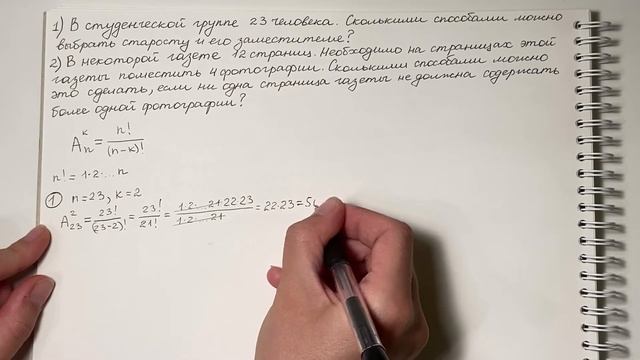 1) В студенческой группе 23 человека. Сколькими способами можно
выбрать старосту и его заместителя?
2) В некоторой газете 12 страниц. Необходимо на страницах этой
газеты поместить 4 фотографии. Сколькими способами можно
это сделать, если ни одна страница газеты не должна содержать
более одной фотографии?
A_n^k = n!/(n-k)!
n! = 1·2·...·n
① n=23, k=2
A_23^2 = 23!/(23-2)! = 23!/21! = 1·2·...·21·22·23/1·2·...·21 = 22·23=5